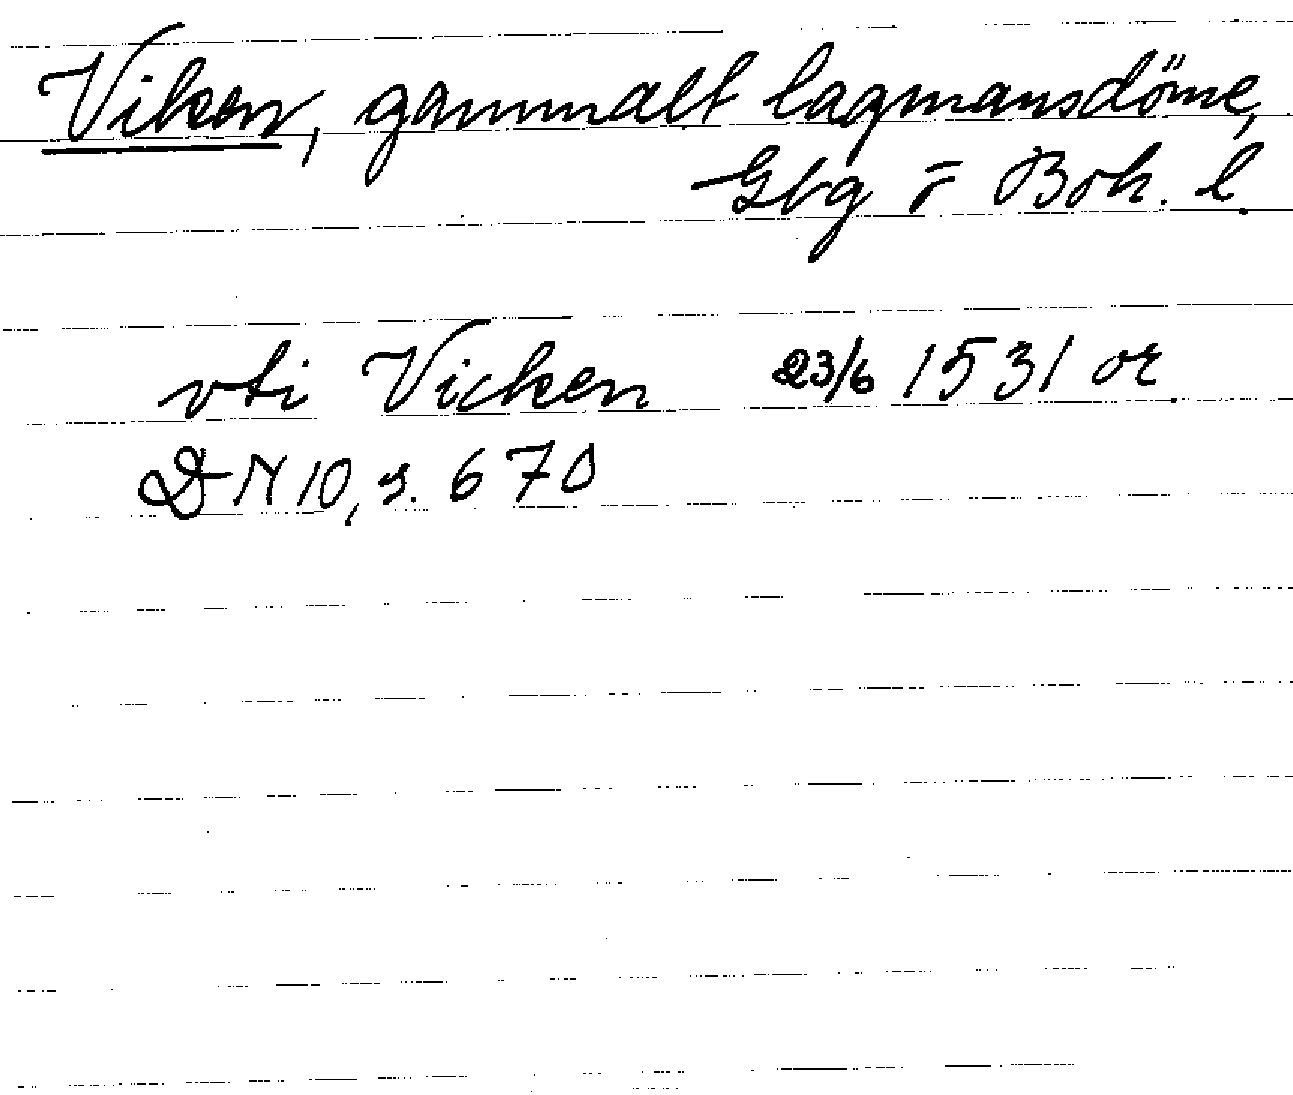 Viken, gammalt lagmansdöme,
Gbg o Boh. l.
vti Vicken 23/6 1531 or.
DN 10, s. 670